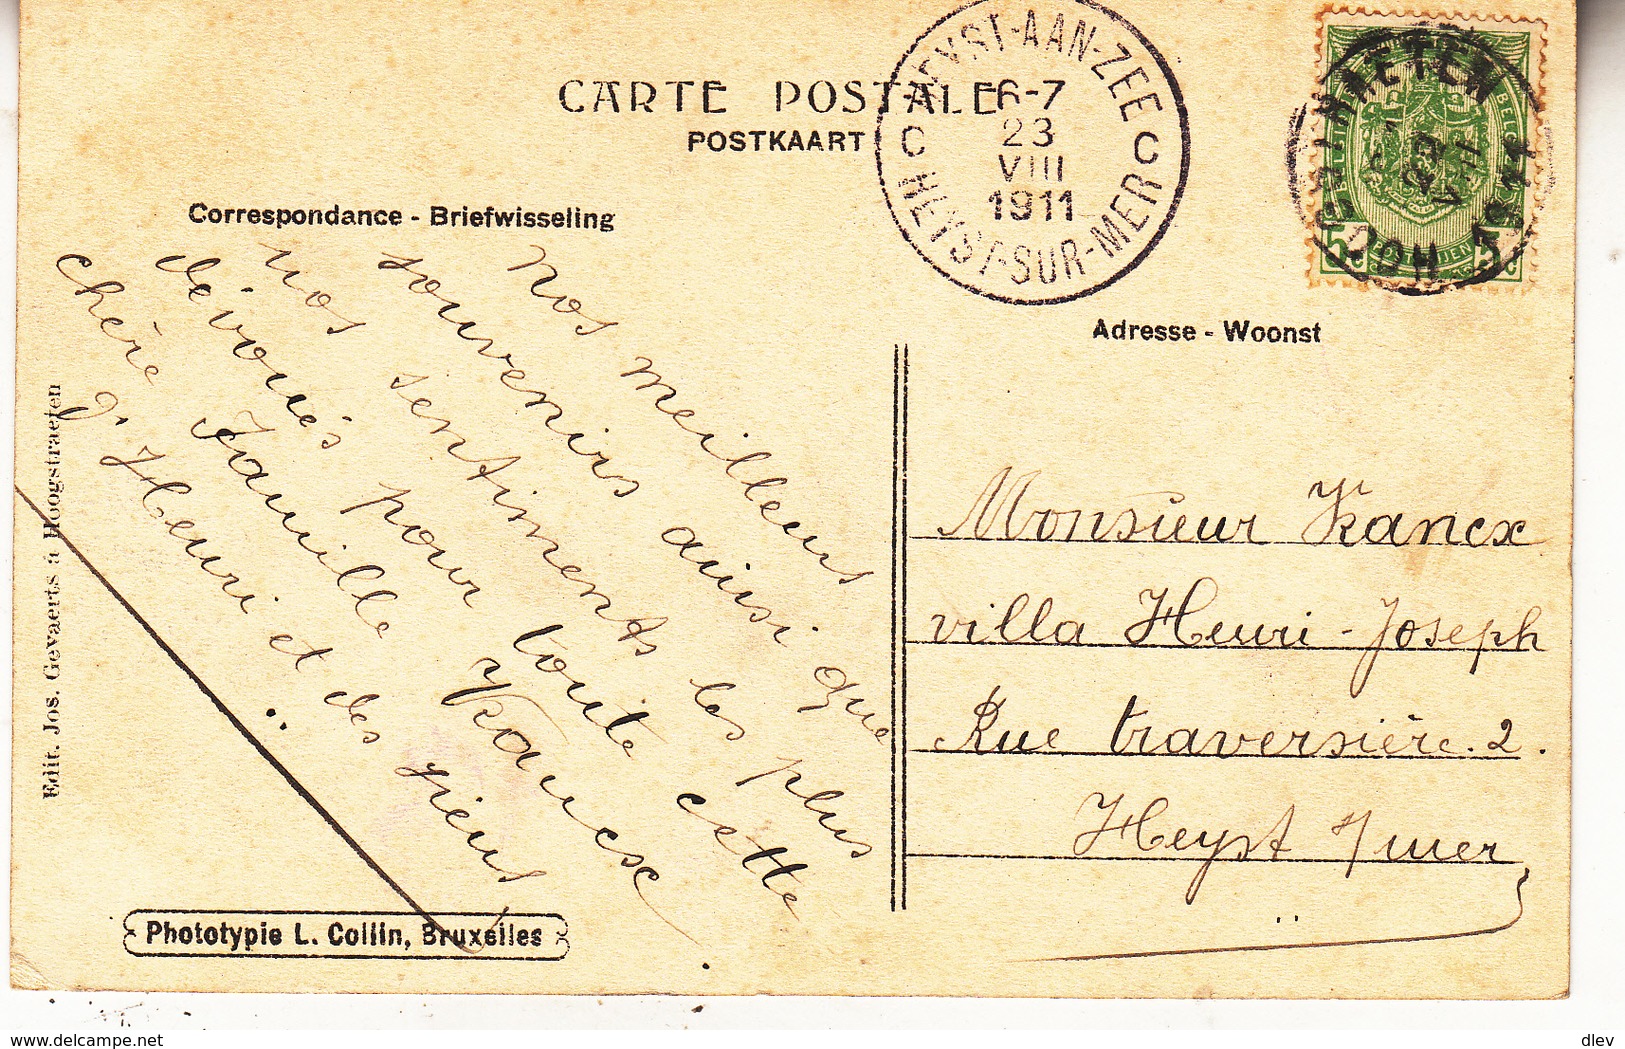 CARTE POSTALE
POSTKAART
HEYST-AAN-ZEE
C 6-7 C
23
VIII
1911
HEYST-SUR-MER
HOOGSTRAETEN
5c 5c
Correspondance - Briefwisseling
Nos meilleurs
souvenirs ainsi que
nos sentiments les plus
dévoués pour toute cette
chère Famille Kancx
g. Henri et des siens
Adresse - Woonst
Monsieur Kancx
villa Henri-Joseph
Rue traversière. 2.
Heyst s/mer
Edit. Jos. Gevaerts à Hoogstraeten
Phototypie L. Collin, Bruxelles
delcampe.net
dlev